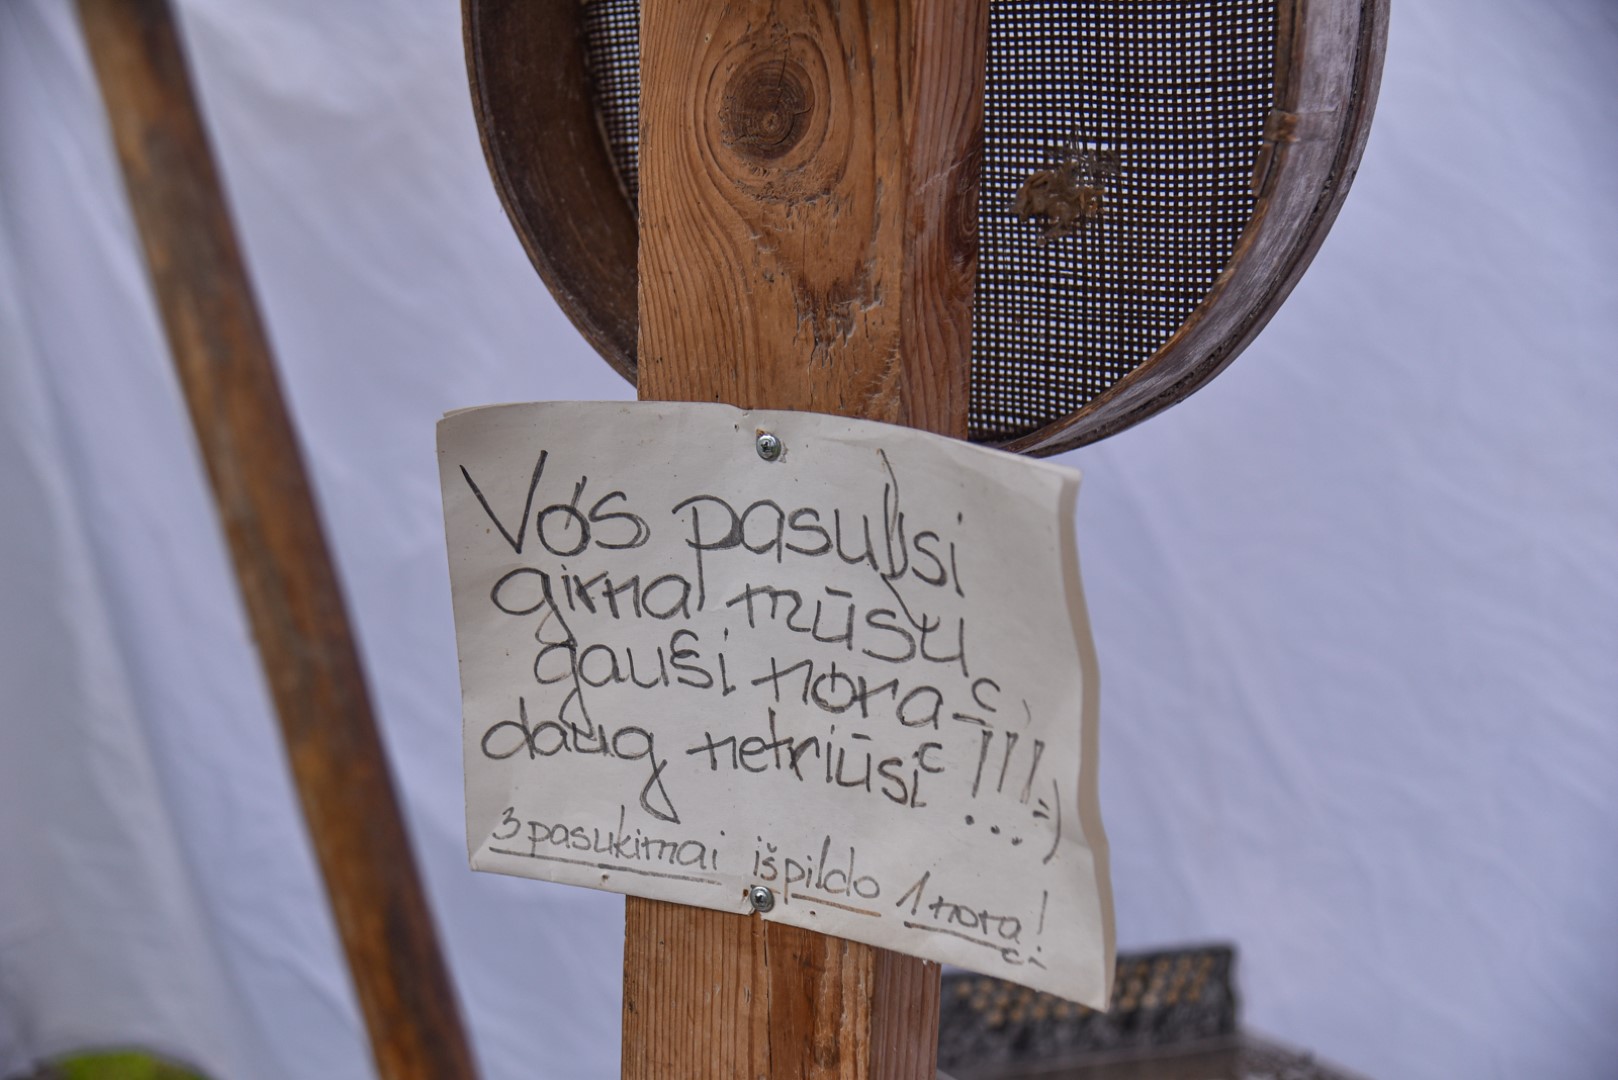 Vos pasuksi
girnas mūsų
gausi norą,
daug netriūsi!!! :)
3 pasukimai išpildo 1 norą!